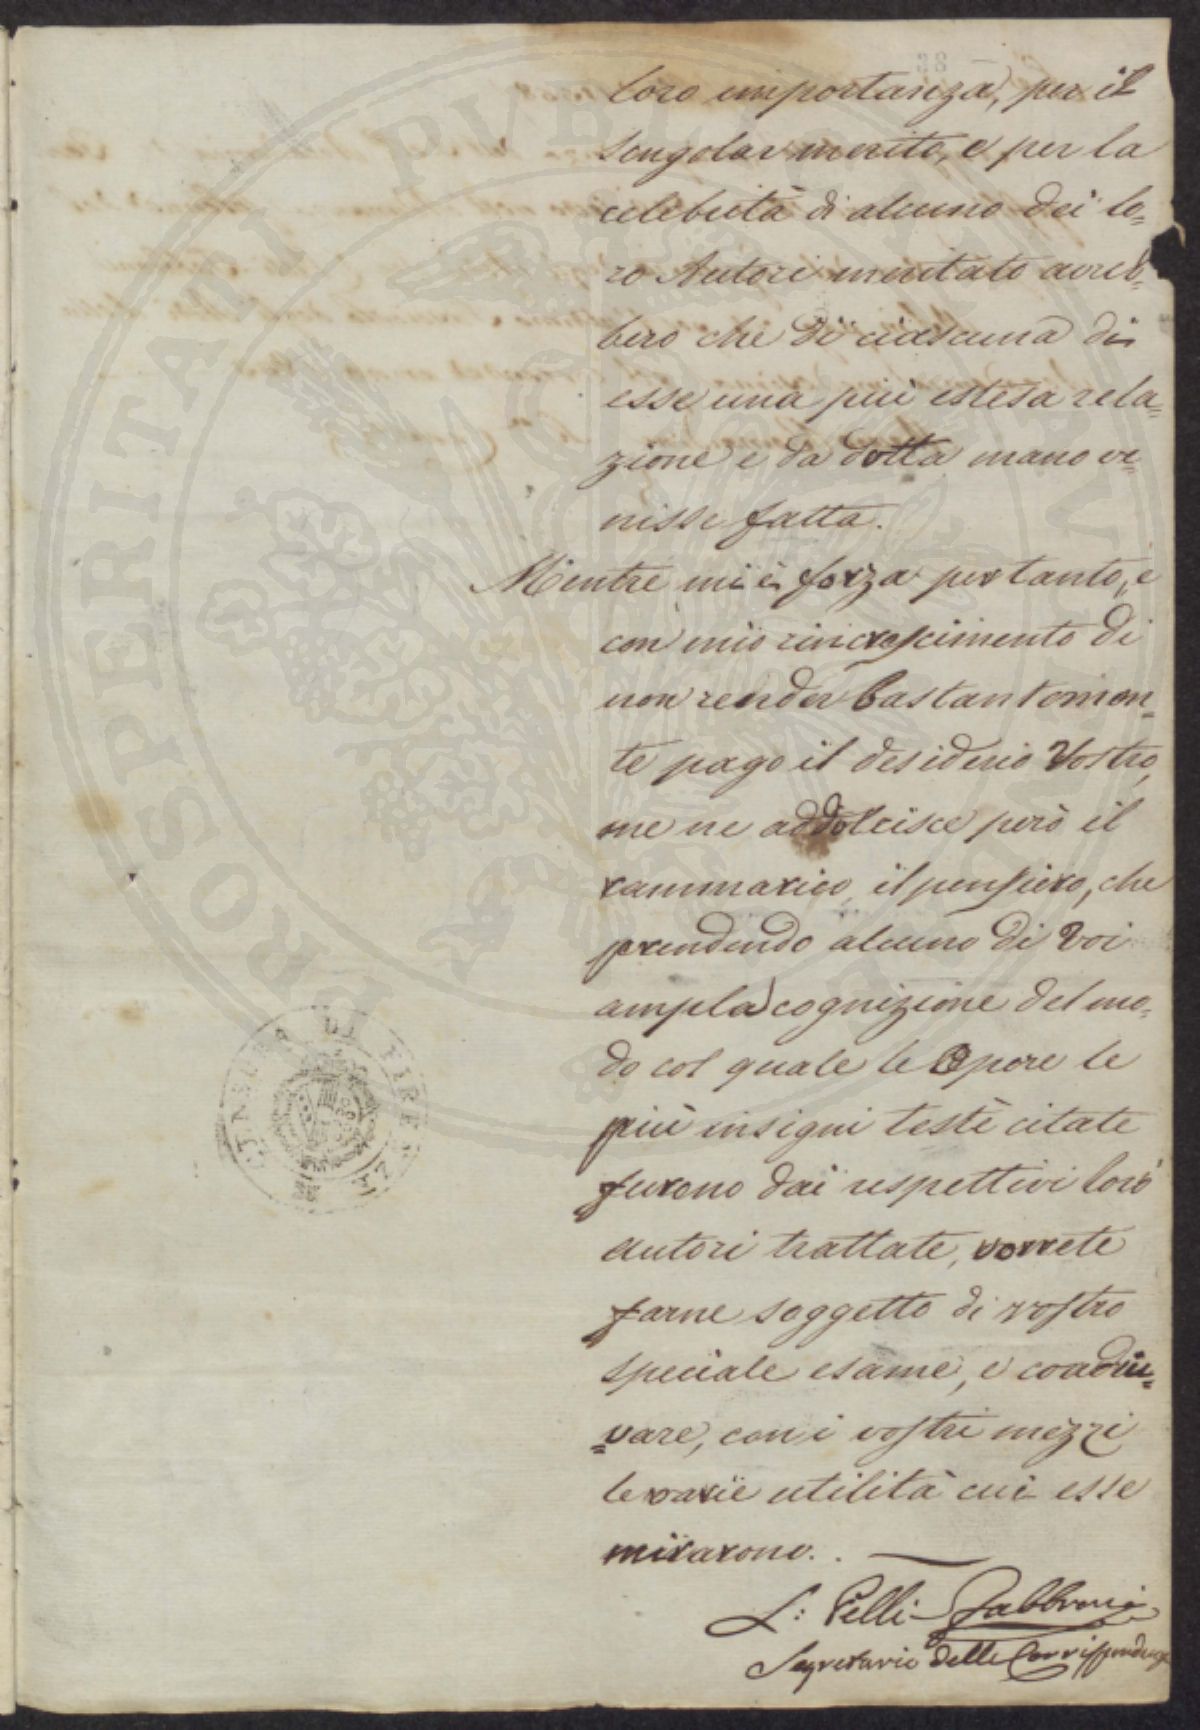 loro importanza, per il
singolar merito, e per la
celebrità di alcuno dei lo=
ro Autori meritato avreb=
bero che di ciascuna di
esse una più estesa rela=
zione e da dotta mano ve=
nisse fatta.
Mentre mi è forza per tanto, e
con mio rincrescimento di
non render bastantemen=
te pago il desiderio Vostro,
me ne addolcisce però il
rammarico il pensiero, che
prendendo alcuno di Voi
ampla cognizione del mo=
do col quale le Opere le
più insigni testè citate
furono dai respettivi loro
autori trattate, vorrete
farne soggetto di vostro
speciale esame, e coadiu=
=vare, con i vostri mezzi
le varie utilità cui esse
mirarono.
L: Pelli-Fabbroni
Segretario delle Corrispondenze
PROSPERITATI PUBLICAE
DI FIRENZA